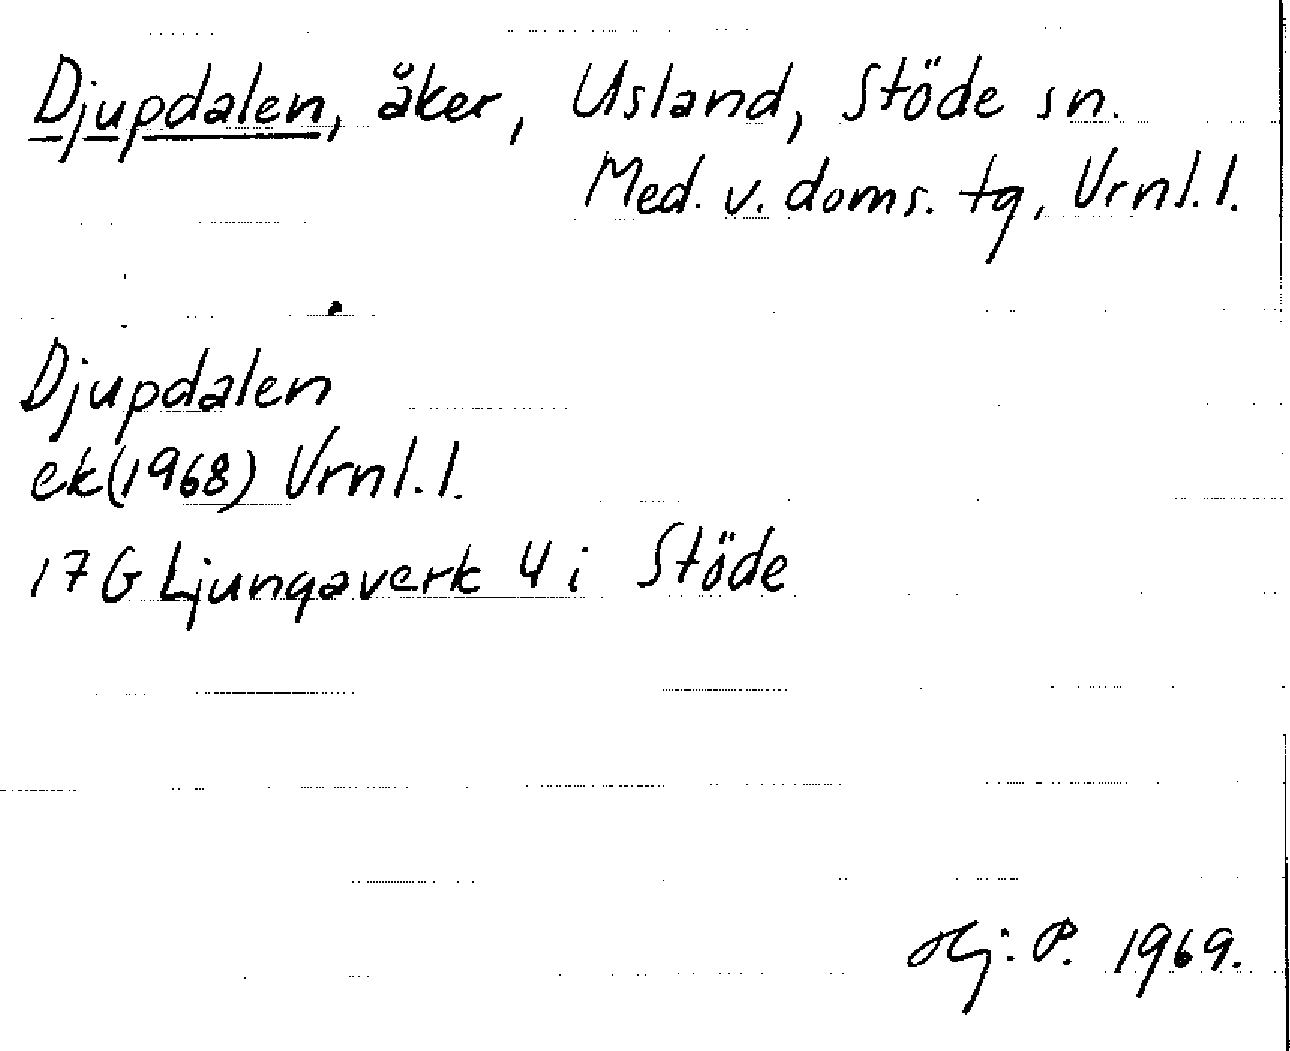 Djupdalen, åker, Usland, Stöde sn.
Med. v. doms. tg, Vrnl. l.
Djupdalen
ek(1968) Vrnl. l.
17G Ljungaverk 4i Stöde
Hj. P. 1969.